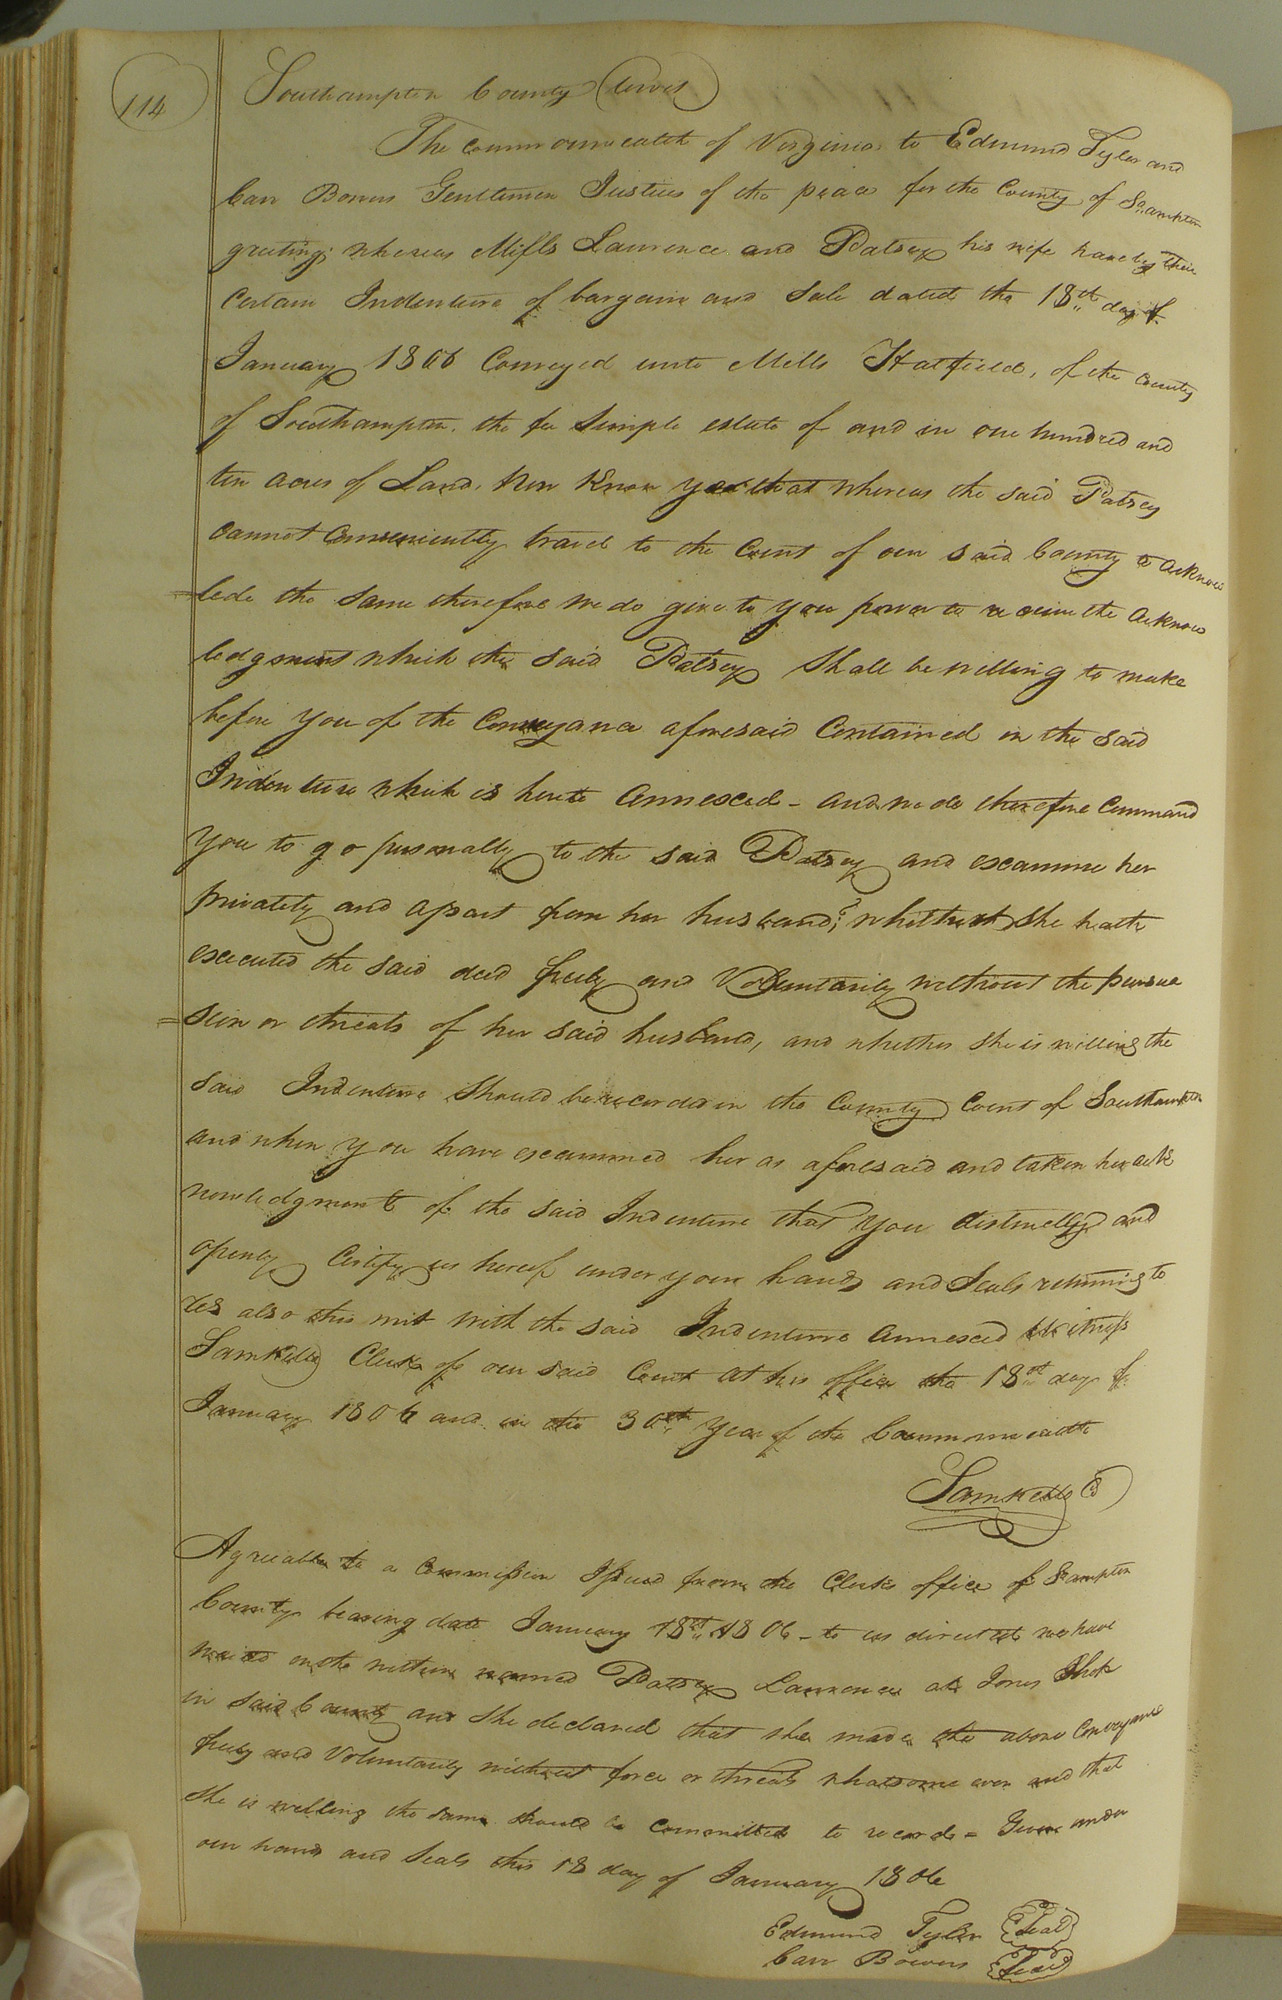 114
Southampton County (towit)
The commonwealth of Virginia to Edmund Tyler and
Carr Bowers Gentlemen Justices of the peace for the County of So:ampton
greeting; whereas Mills Laurence and Patsey his wife have by their
Certain Indenture of bargain and Sale dated the 18th day of
January 1806 Conveyed unto Mills Hatfield, of the County
of Southampton. the fee Simple estate of and in one hundred and
ten acres of Land. Now Know you that whereas the said Patsey
cannot Conveniently travel to the Court of our said County to acknow
=lede the Same therefore we do give to you power to receive the acknow
ledgment which the said Patsey Shall be willing to make
before you of the Conveyance aforesaid Contained in the said
Indenture which is hereto Annexed - and we do therefore Command
you to go personally to the said Patsey and examine her
privately and apart from her husband; whether She hath
executed the said deed freely and Voluntarily without the persua
=sion or threats of her said husband, and whether she is willing the
said Indenture Should be recorded in the County Court of Southampton
and when you have examined her as aforesaid and taken her ack
nowledgment of the said Indenture that you distinctly and
openly Certify us hereof under your hands and Seals returning to
us also this writ with the said Indenture annexed Witness
Saml Kello Clerk of our said Court at his office the 18th day of
January 1806 and in the 30th Year of the Commonwealth
Saml Kello
Agreeable to a Commission Issued from the Clerks office of So:ampton
County bearing date January 18th 1806 - to us directed we have
waited on the within named Patsey Laurence at Jones
in said County and She declared that she made the above Conveyance
freely and Voluntarily without force or threats whatsome ever and that
She is willing the same should be committed to records = Given under
our hands and Seals this 18 day of January 1806
Edmund Tyler (Seal)
Carr Bowers (Seal)